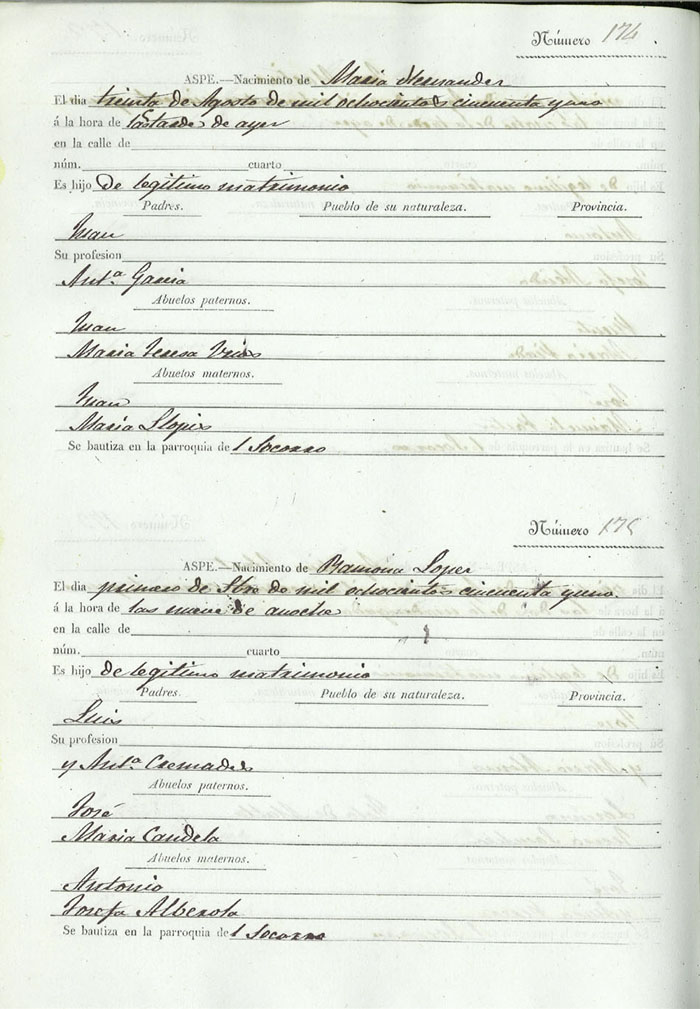 Número 174
ASPE.—Nacimiento de Maria Hernandez
El dia treinta de Agosto de mil ochocientos cincuenta y uno
á la hora de las tarde de ayer
en la calle de
núm. cuarto
Es hijo de legitimo matrimonio
Padres. Pueblo de su naturaleza. Provincia.
Juan
Su profesion
Ant.ª Garcia
Abuelos paternos.
Juan
Maria Teresa
Abuelos maternos.
Juan
Maria Llopis
Se bautiza en la parroquia de l Socorro
Número 175
ASPE.—Nacimiento de Ramona Lopez
El dia primero de Stbre de mil ochocientos cincuenta y uno
á la hora de las nueve de anoche
en la calle de
núm. cuarto
Es hijo de legitimo matrimonio
Padres. Pueblo de su naturaleza. Provincia.
Luis
Su profesion
y Ant.ª Cremades
Abuelos paternos.
José
Maria Candela
Abuelos maternos.
Antonio
Josefa Alberola
Se bautiza en la parroquia de l Socorro